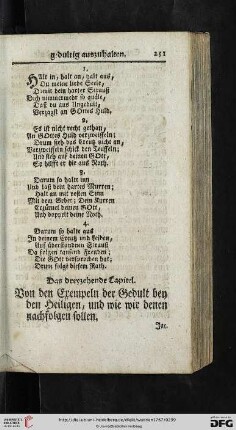 gedultig auszuhalten. 251
1.
Halt in, halt an, halt aus,
Du meine liebe Seele,
Damit dein harter Strauß
Dich nimmermehr so quäle,
Daß du aus Ungedult,
Verzagst an GOttes Huld.
2.
Es ist nicht recht gethan,
An GOttes Huld verzweiffeln;
Drum sieh das Creutz nicht an,
Verzweiffeln schickt den Teuffeln;
Und sieh auf deinen GOtt,
Er hilfft er dir aus Noth.
3.
Darum so halte inn
Und laß dein hartes Murren;
Halt an mit vestem Sinn
Mit dem Gebet; Dein Kurren
Erzürnet deinen GOtt,
Und doppelt deine Noth.
4.
Darum so halte aus
In deinem Creutz und Leiden,
Auf überstandnen Strauß
Da folgen tausend Freuden;
Die GOtt versprochen hat;
Drum folge diesem Rath.
Das dreyzehende Capitel.
Von den Exempeln der Gedult bey
den Heiligen, und wie wir denen
nachfolgen sollen.
Jac.
UNIVERSITÄTS-BIBLIOTHEK HEIDELBERG
DFG